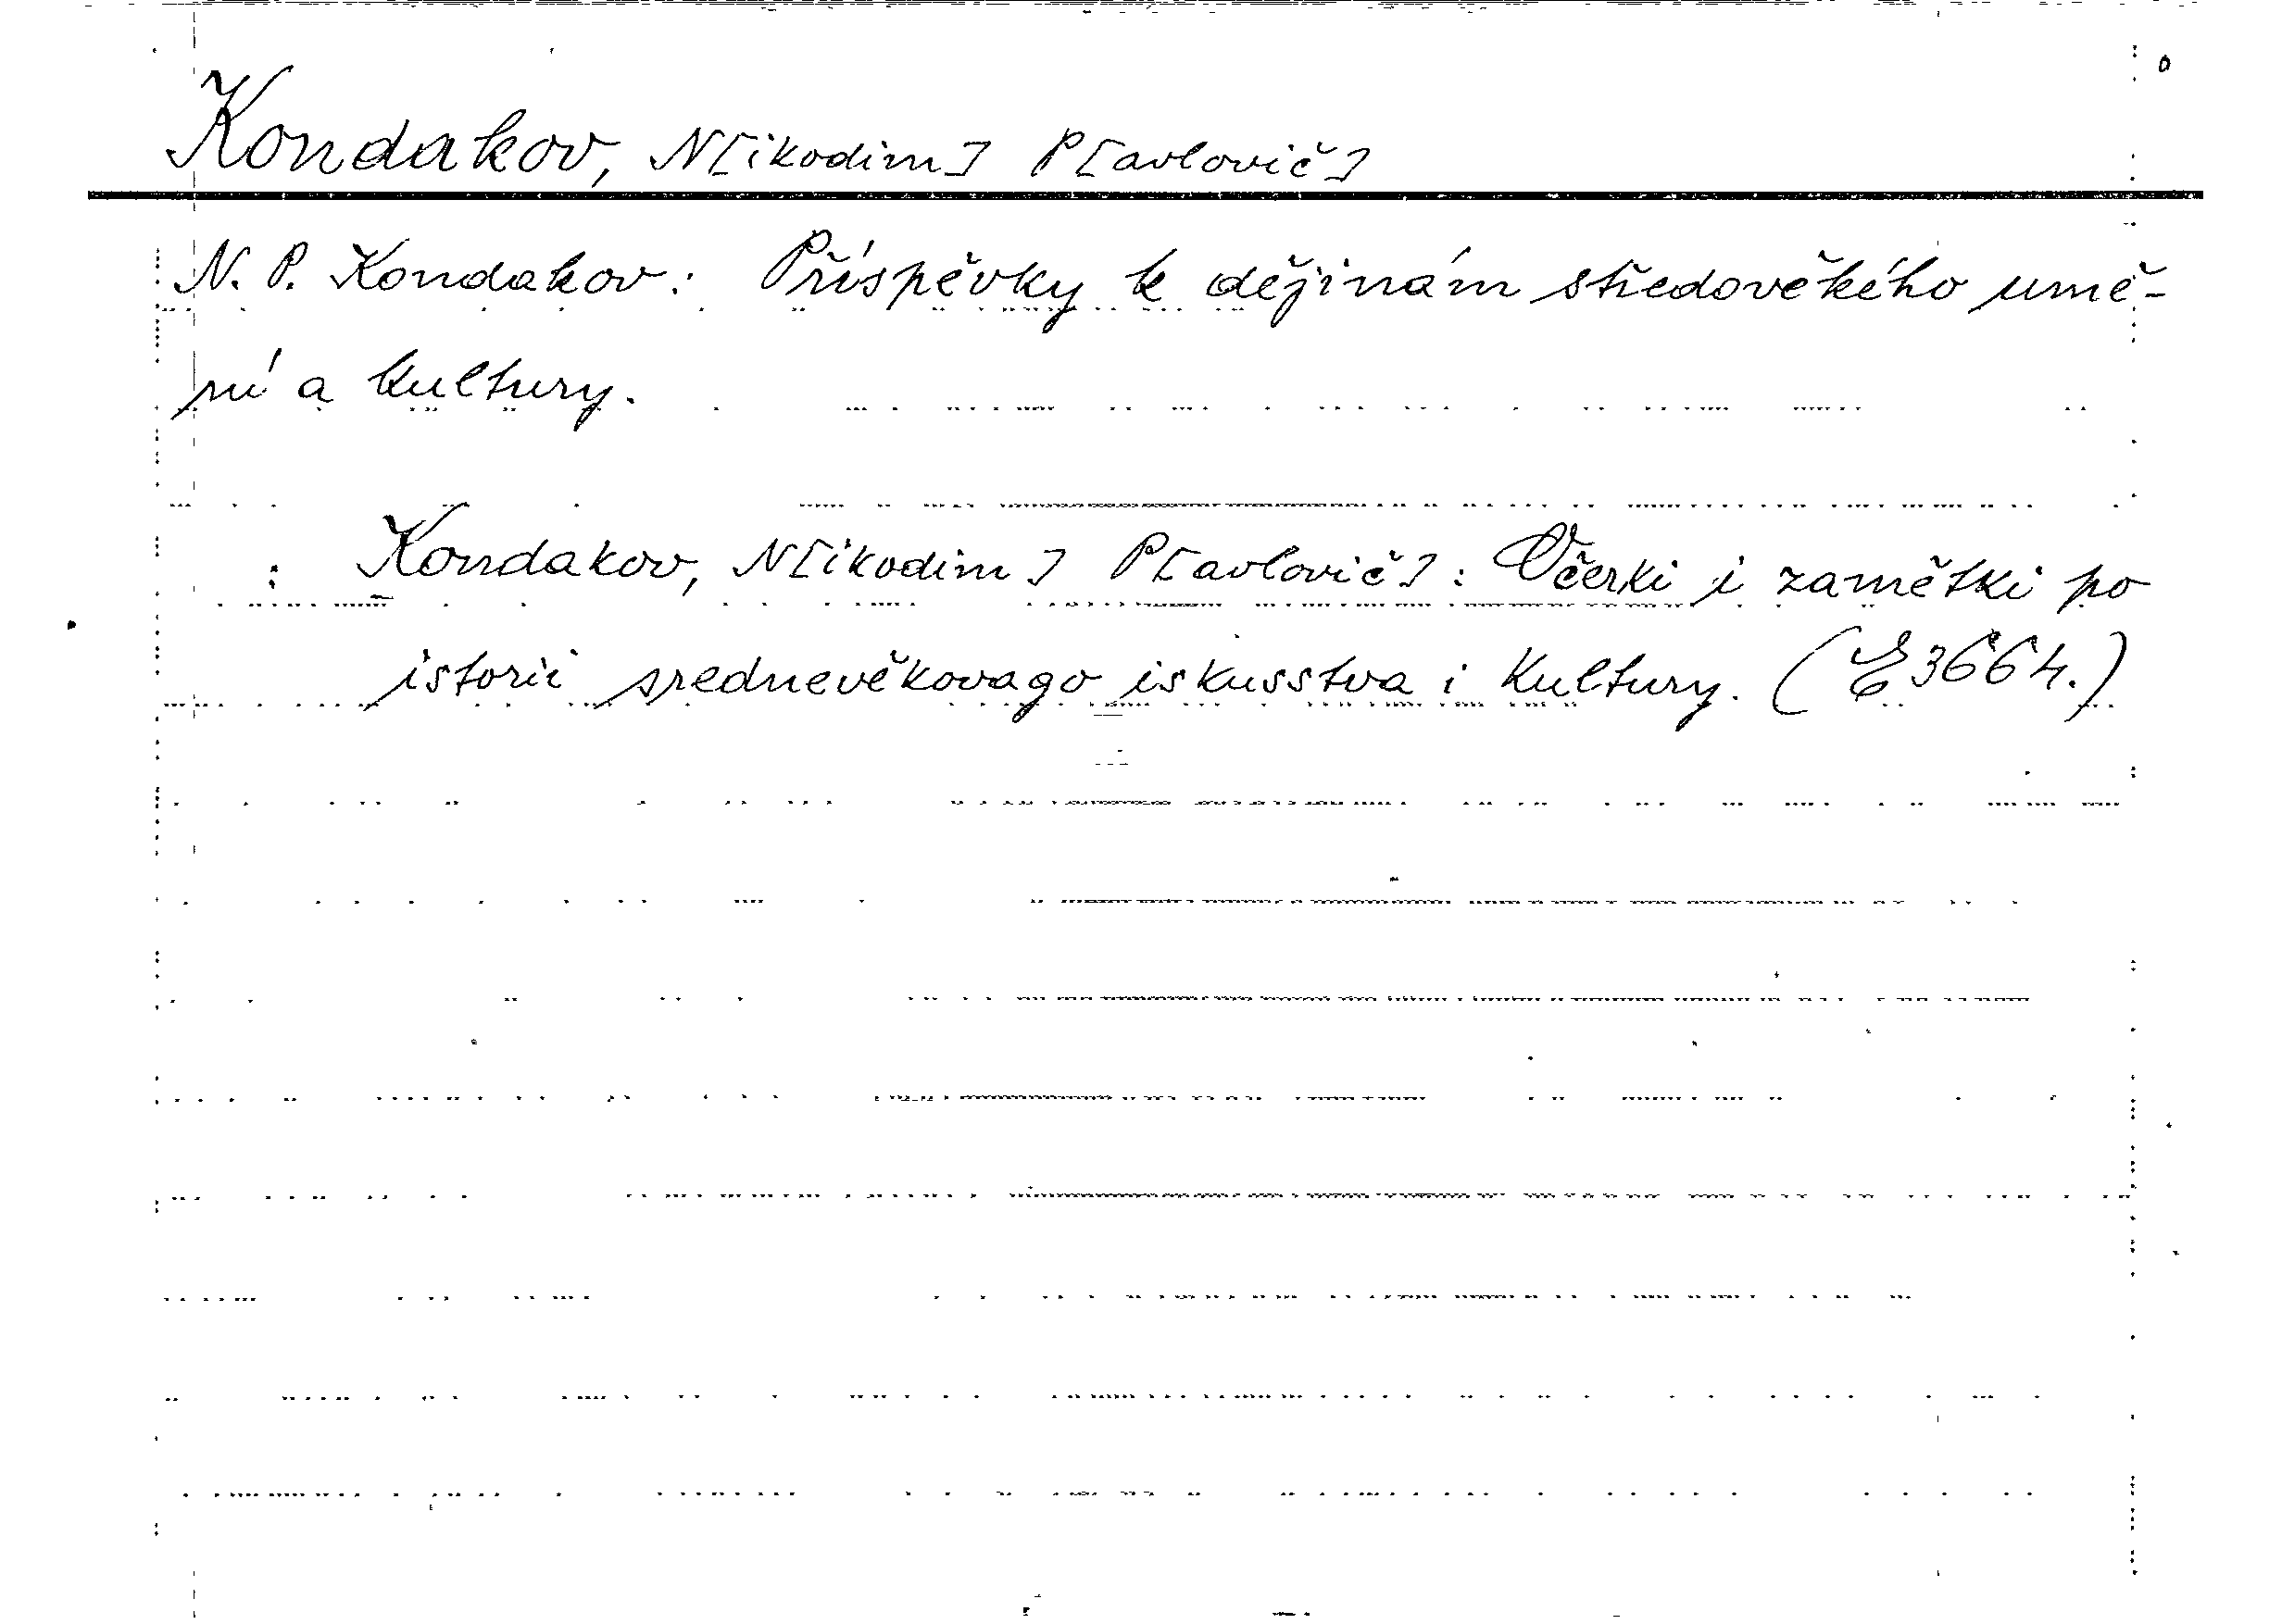 Kondakov, N[ikodim] P[avlovič]
N. P. Kondakov: Příspěvky k dějinám středověkého umě-
ní a kultury.
: Kondakov, N[ikodim] P[avlovič]: Očerki i zamětki po
istorii srednevěkovago iskusstva i kultury. (E 3664.)